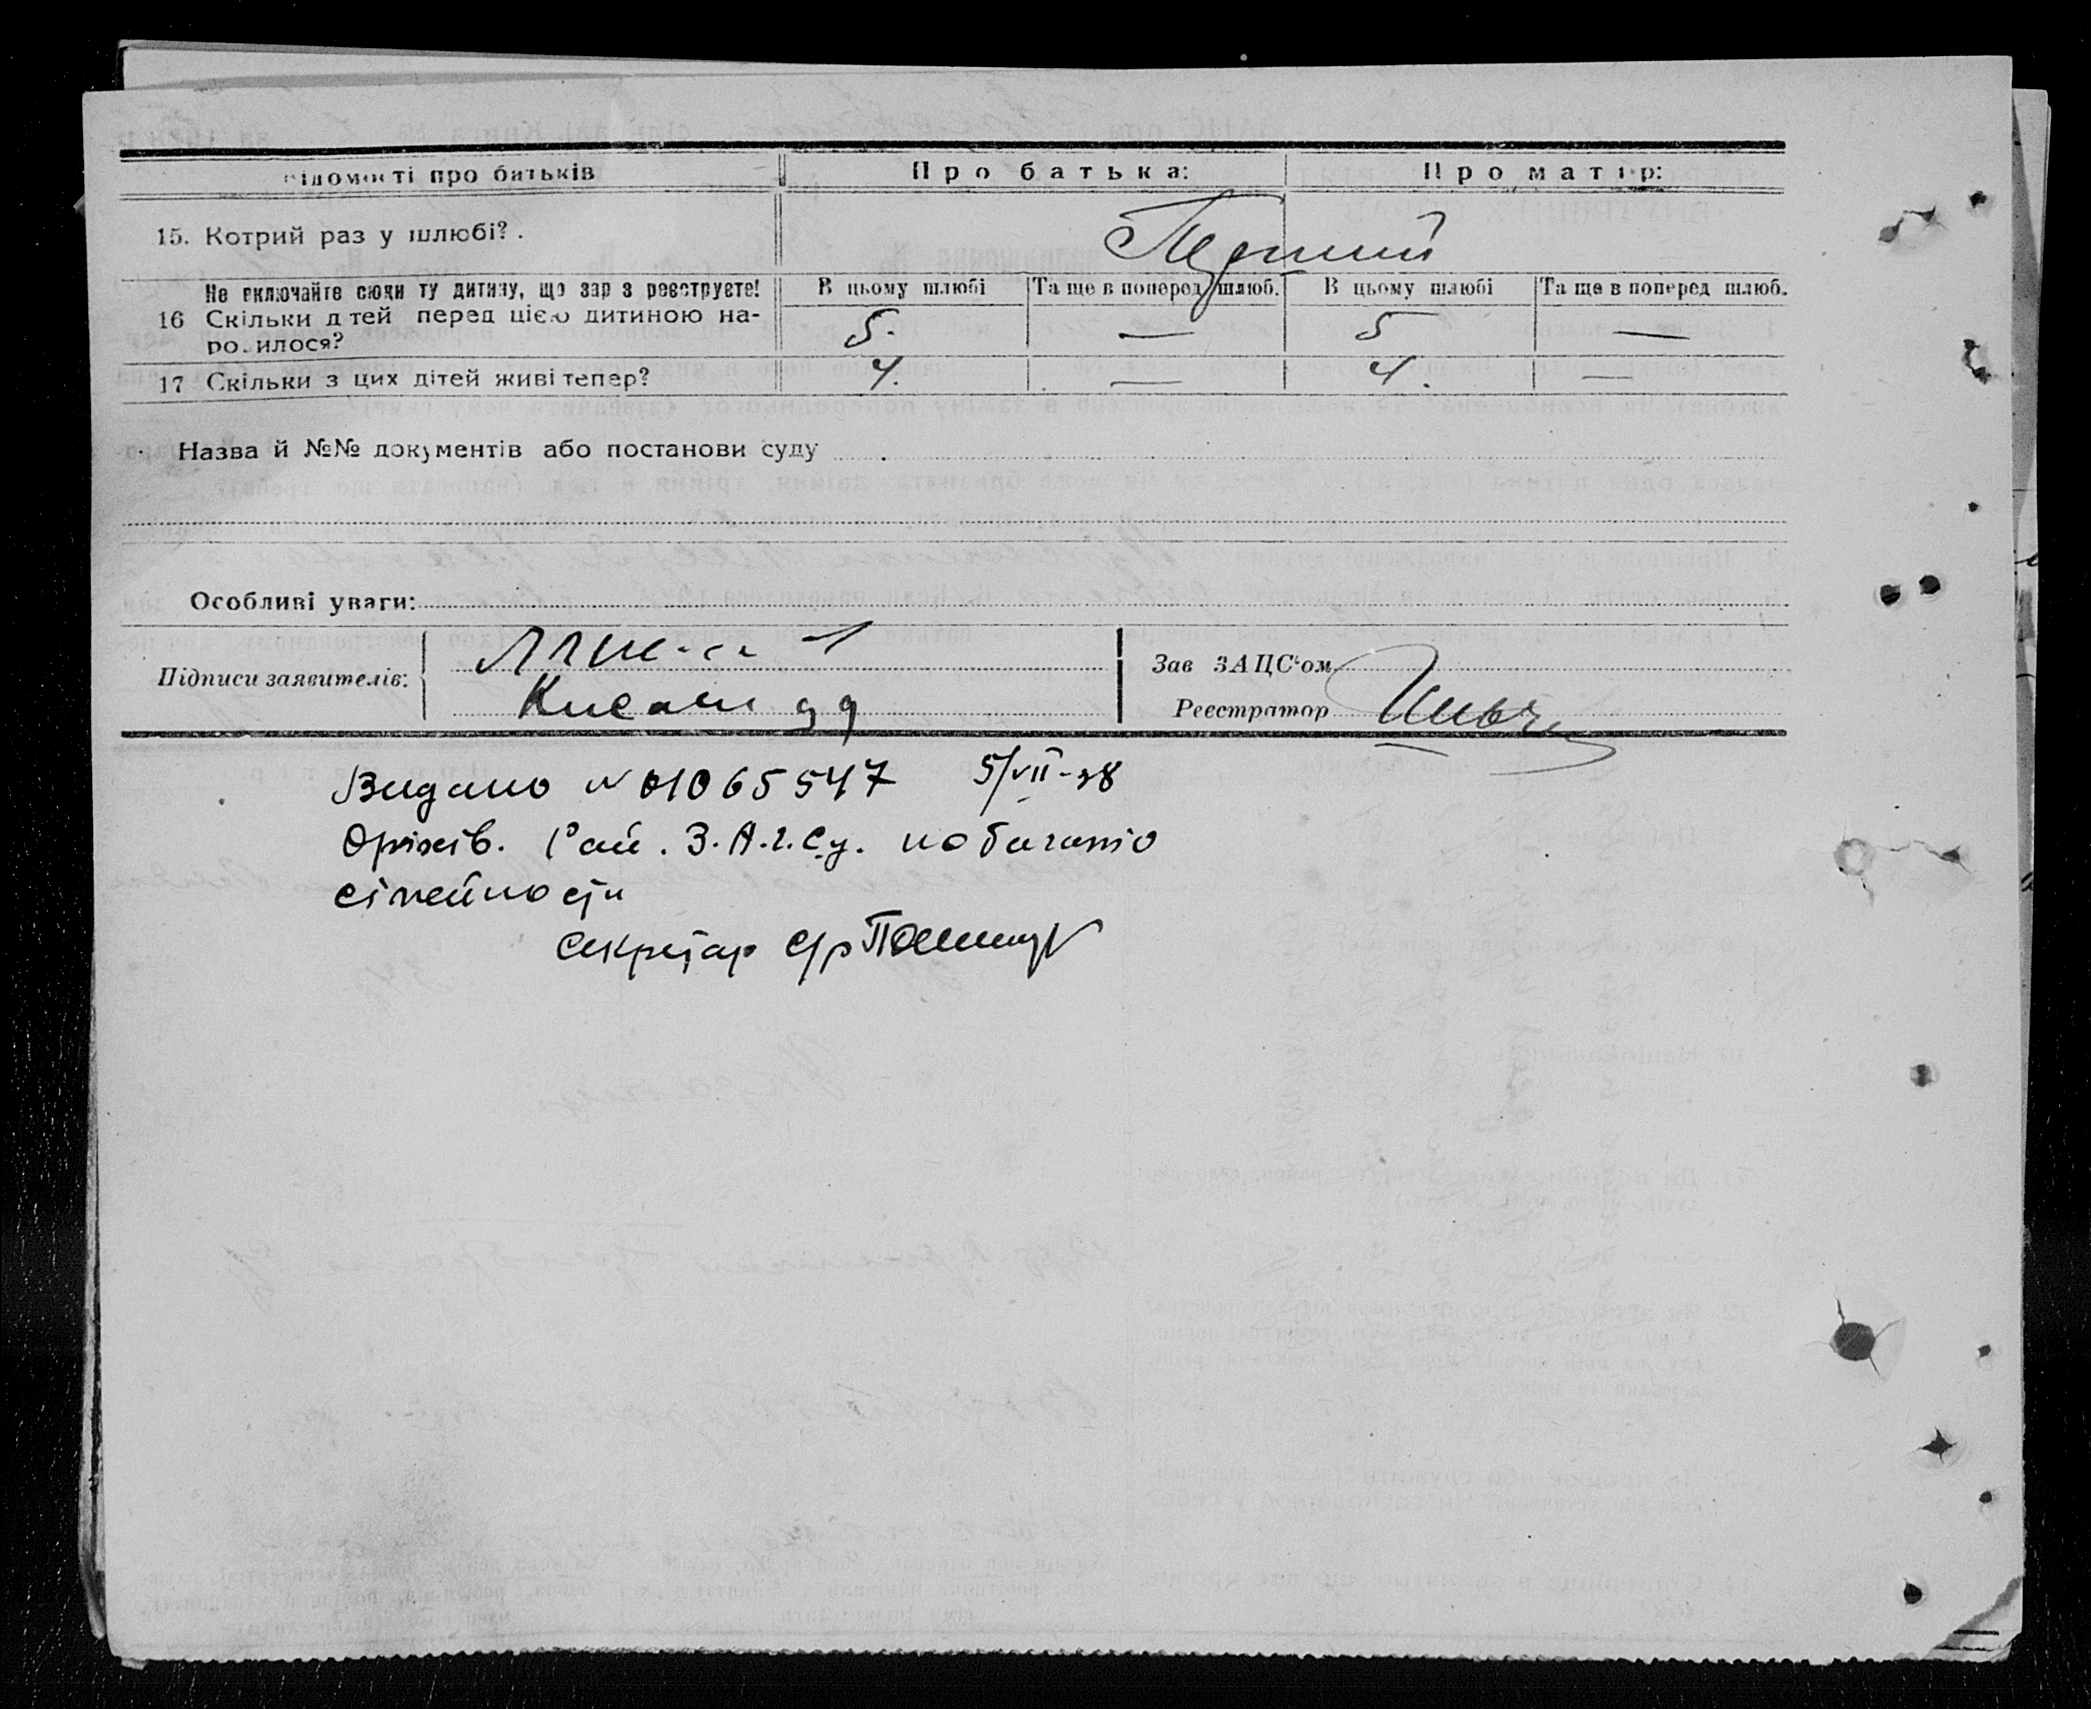 Відомості про батьків Про батька: Про матір:
15. Котрий раз у шлюбі? . Перший
Не включайте сюди ту дитину, що зараз реєструєте! В цьому шлюбі Та ще в поперед. шлюб. В цьому шлюбі Та ще в поперед шлюб.
16 Скільки дітей перед цією дитиною на- 5. — 5 —
родилося?
17 Скільки з цих дітей живі тепер? 4. — 4. —
Назва й №№ документів або постанови суду
Особливі уваги:
Підписи заявителів:
Зав ЗАЦС‘ом
Реєстратор
Видано N 01065547 5/VII-38
Оріхів. Рай. З.А.Г.Су. по багато
сімейности
Секретар с/р